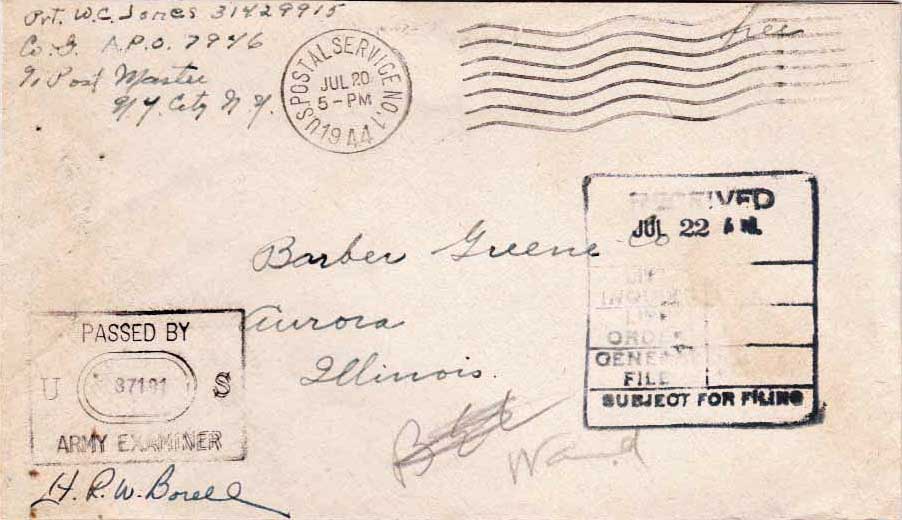 Pvt. W.C. Jones 31429915
Co. G. A.P.O. 7946
% Post Master
N.Y. City N.Y.
U.S. POSTAL SERVICE NO. 1
JUL 20
5-PM
1944
free
RECEIVED
JUL 22 A M.
ORDER
GENERAL
FILE
SUBJECT FOR FILING
Barber Greene Co
Aurora
Illinois.
PASSED BY
U 37191 S
ARMY EXAMINER
H. R. W.
Ward